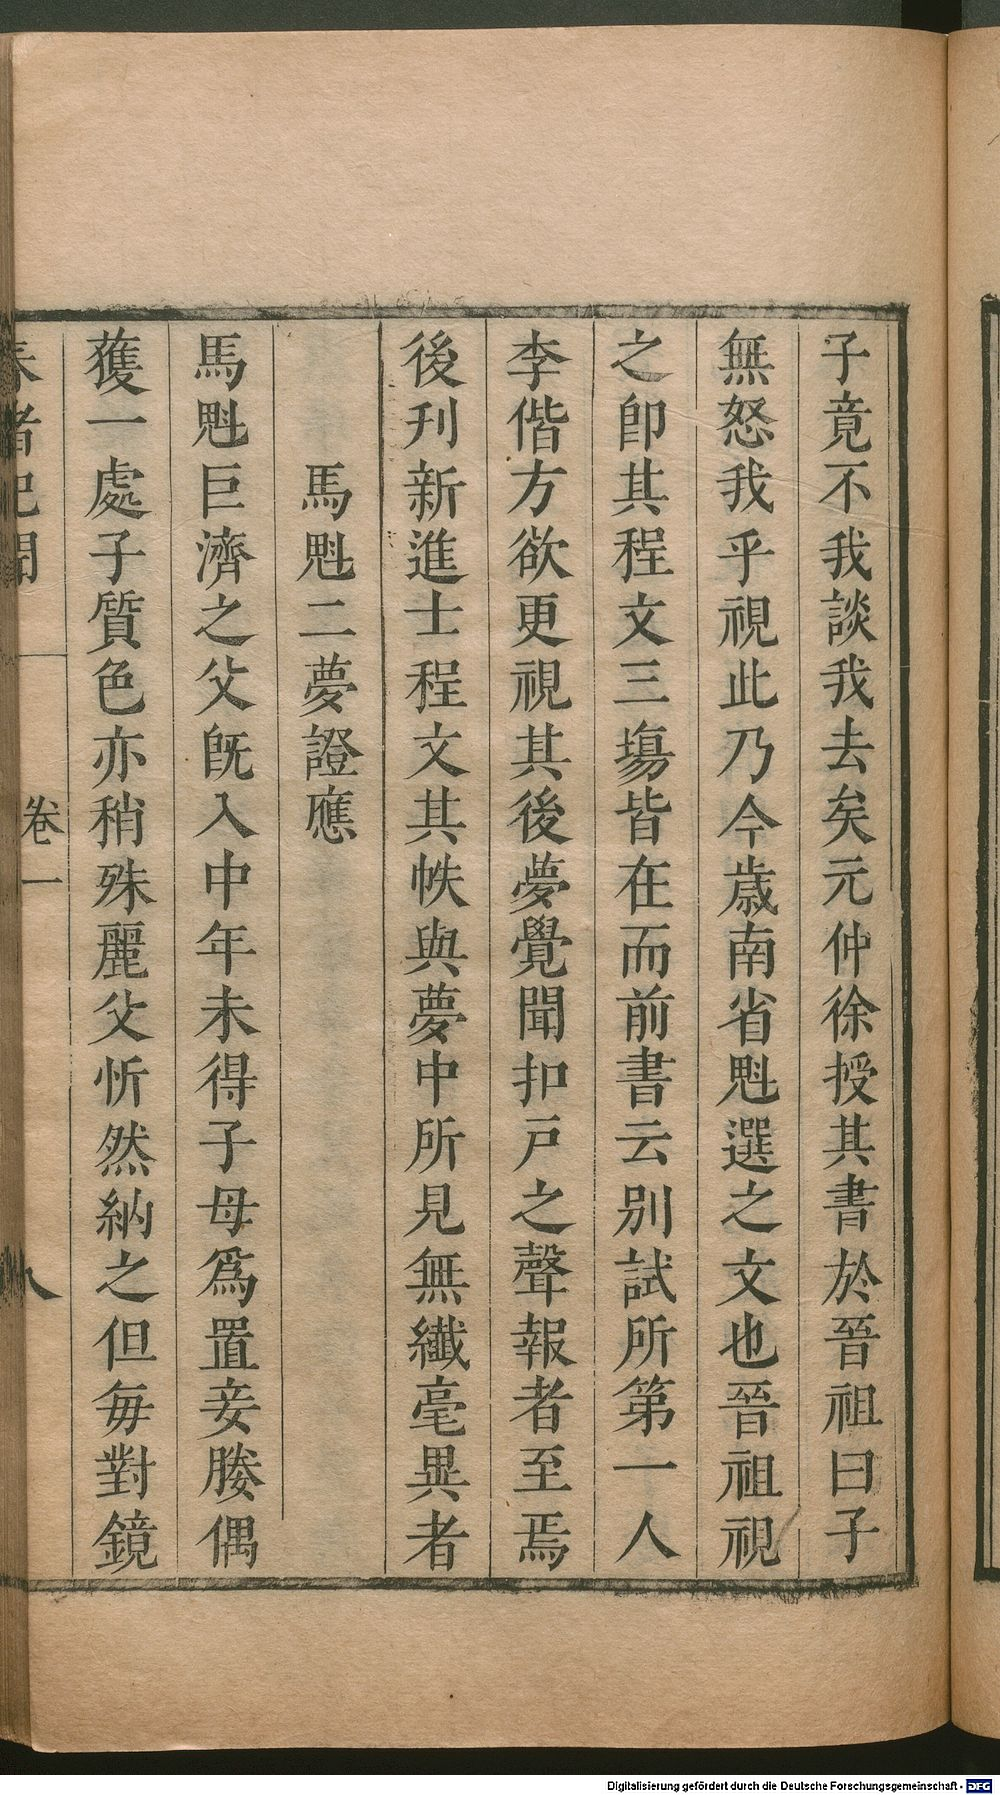 子竟不我談我去矣元仲徐授其書於晉祖曰子
無怒我乎視此乃今歳南省魁選之文也晉祖視
之卽其程文三塲皆在而前書云別試所第一人
李偕方欲更視其後夢覺聞扣戸之聲報者至焉
後刋新進士程文其帙與夢中所見無纎毫異者
馬魁二夢證應
馬魁巨濟之父旣入中年未得子母爲置妾媵偶
獲一處子質色亦稍殊麗父忻然納之但毎對鏡
春渚紀聞 卷一 八
Digitalisierung gefördert durch die Deutsche Forschungsgemeinschaft - DFG